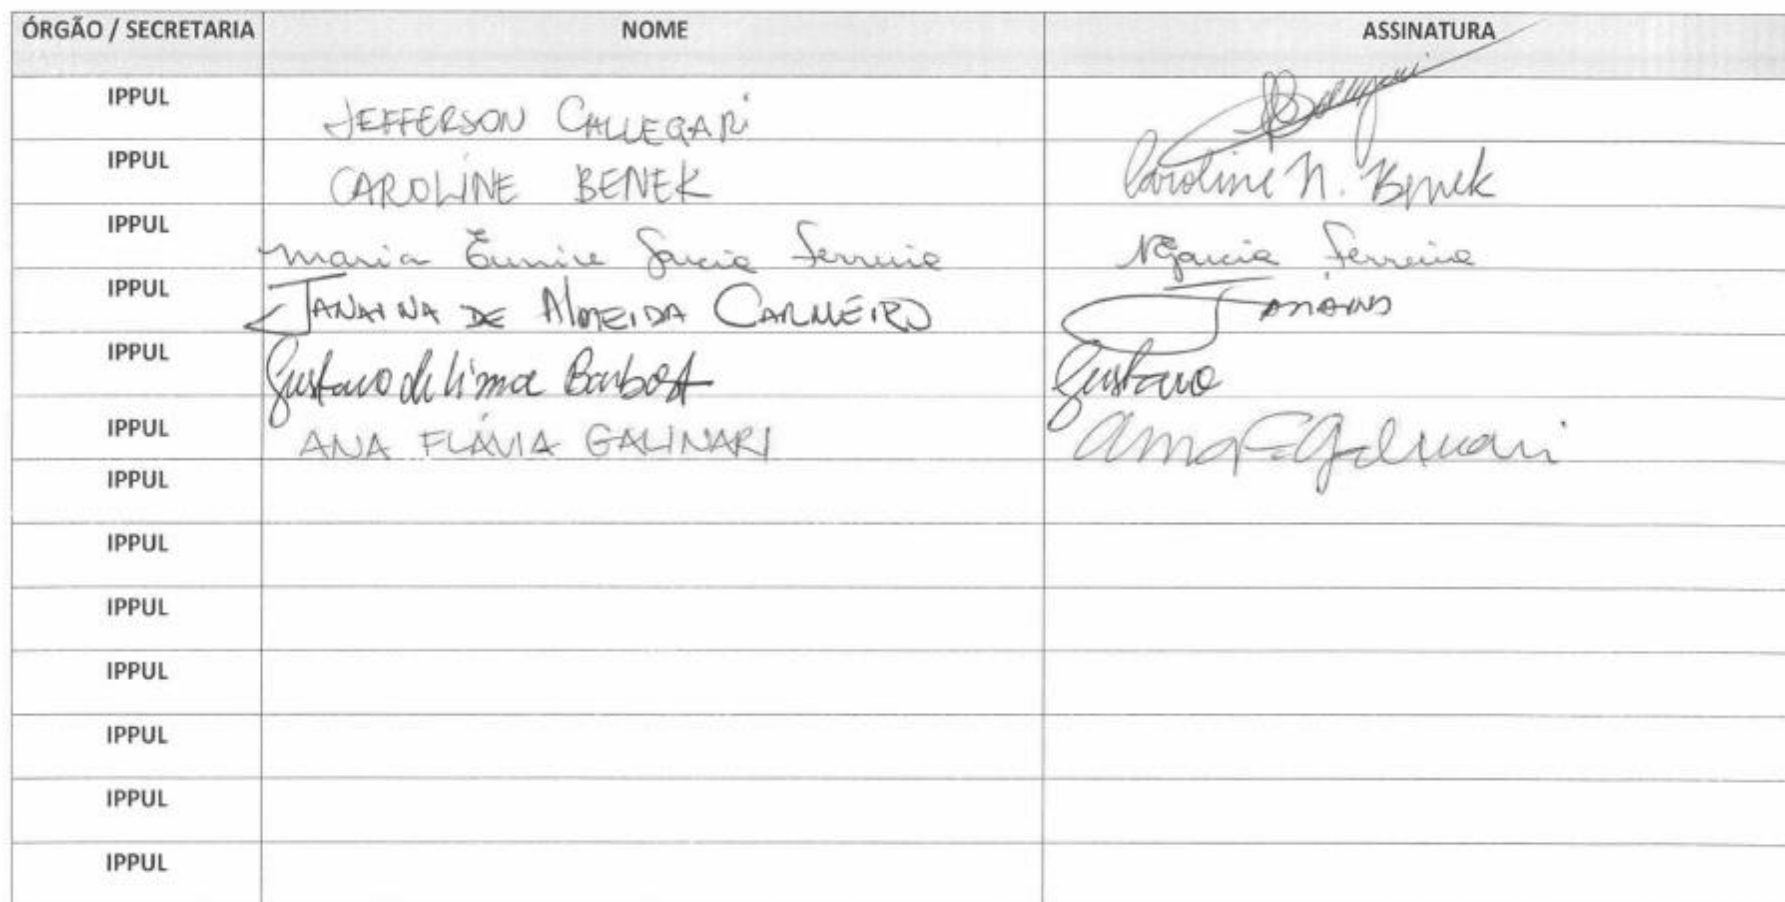 ÓRGÃO / SECRETARIA NOME ASSINATURA
IPPUL JEFFERSON CALLEGARI
IPPUL CAROLINE BENEK Caroline N. Benek
IPPUL Maria Eunice Garcia Ferreira Garcia Ferreira
IPPUL JANAINA DE ALMEIDA CARNEIRO Janaina
IPPUL Gustavo de Lima Barbosa Gustavo
IPPUL ANA FLÁVIA GALINARI Ana F Galinari
IPPUL
IPPUL
IPPUL
IPPUL
IPPUL
IPPUL
IPPUL